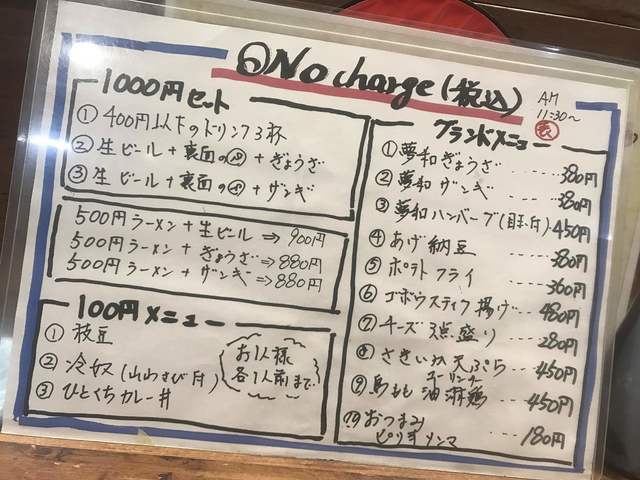 No charge (税込)
AM
11:30～
表
1000円セット
① 400円以下のドリンク3杯
② 生ビール + 裏面の + ぎょうざ
③ 生ビール + 裏面の + ザンギ
500円ラーメン + 生ビール ⇒ 900円
500円ラーメン + ぎょうざ ⇒ 880円
500円ラーメン + ザンギ ⇒ 880円
100円メニュー
① 枝豆
② 冷奴 (山わさび付)
③ ひとくちカレー丼
お1人様
各1人前まで
グランドメニュー
① 夢和ぎょうざ ---- 380円
② 夢和ザンギ ---- 380円
③ 夢和ハンバーグ(目玉付) 450円
④ あげ納豆 ---- 380円
⑤ ポテトフライ ---- 360円
⑥ ゴボウスティック揚げ ---- 480円
⑦ チーズ3点盛り ---- 280円
⑧ さきいか天ぷら ---- 450円
⑨ 鳥もも油淋鶏 ---- 450円
ユーリンチー
⑩ おつまみ
ピリ辛メンマ ---- 180円